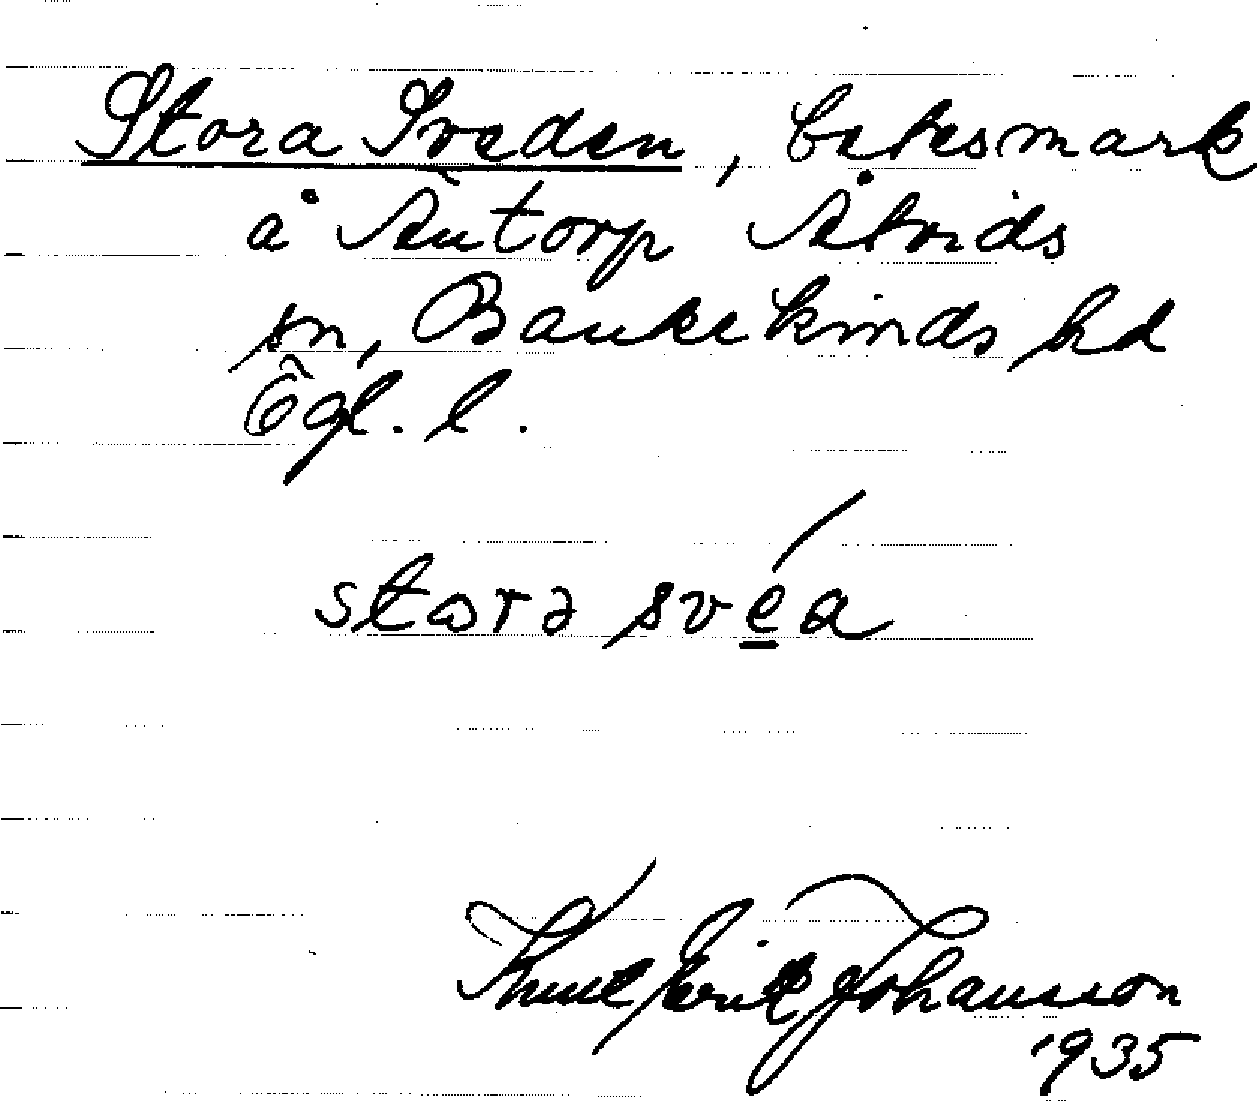 Stora Sveden, betesmark
å Äntorp Åtvids
sn, Bankekinds hd
Ögl. l.
stora svea
Knut Erik Johansson
1935